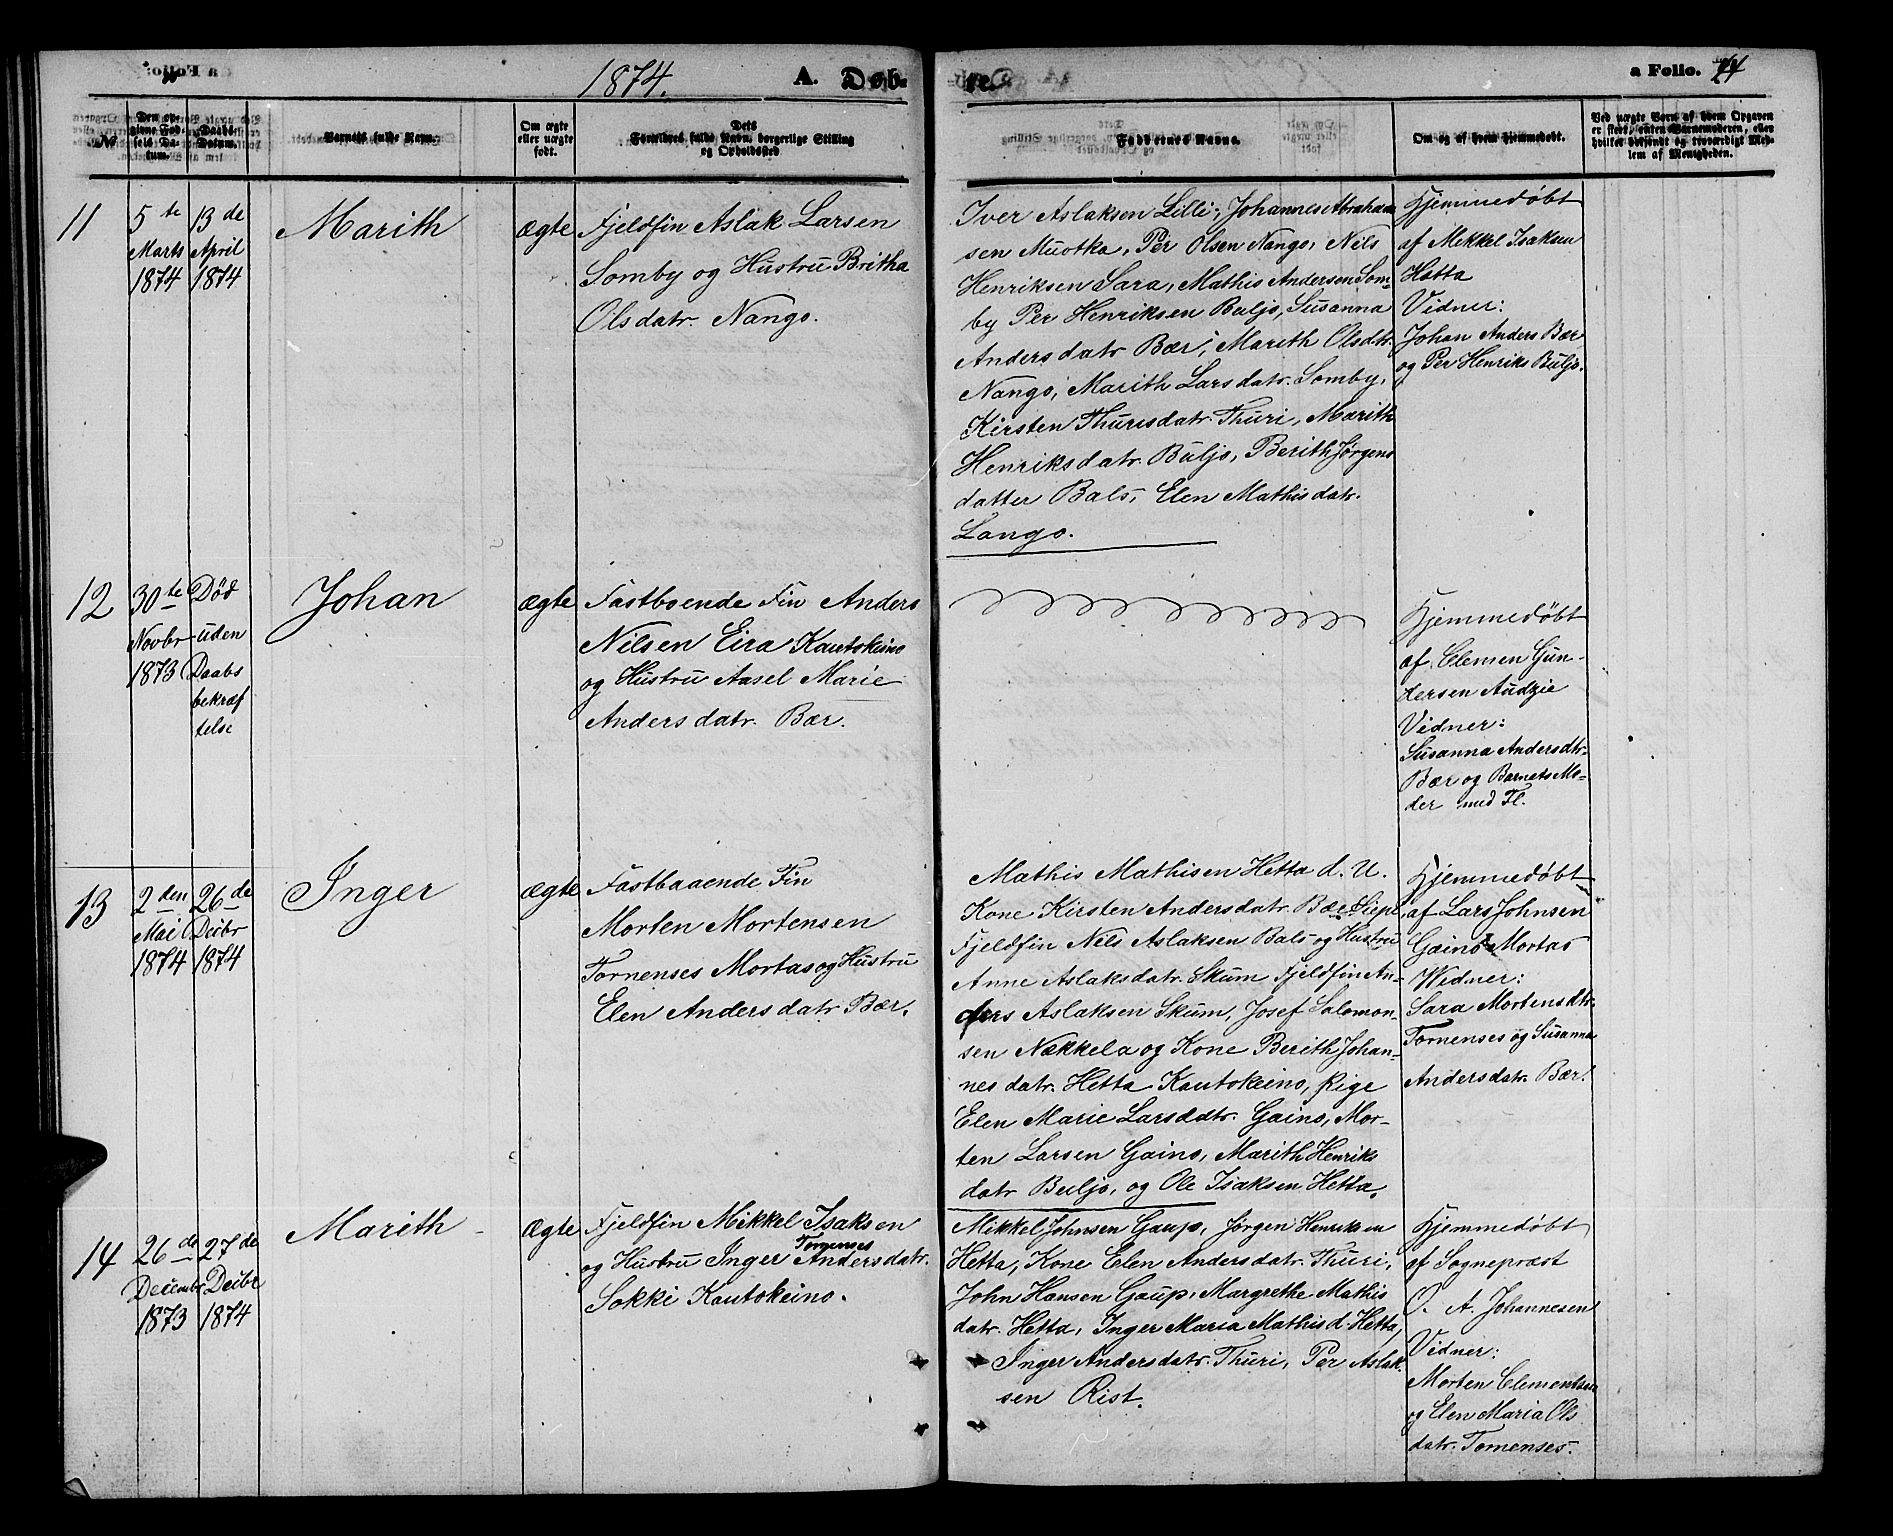 1874.
A. Døb-
te.
a Folio. 14
№
Den opgivne Fødsels Datum.
Daabs-Datum.
Barnets fulde Navn.
Om ægte eller uægte født.
Dets Forældres fulde Navn, borgerlige Stilling og Opholdssted.
Faddernes Navne.
Om og af hvem hjemmedøbt.
Ved uægte Børn af hvem Opgaven er skeet, enten Barnemoderen, eller hvilket bekjendt og troværdigt Medlem af Menigheden.
11
5te
Marts
1874
13de
April
1874
Marith
ægte
Fjeldfin Aslak Larsen
Somby og Hustru Britha
Olsdatr. Nango.
Iver Aslaksen Lilli, Johannes Abraham
sen Muotka, Per Olsen Nango, Nils
Henriksen Sara, Mathis Andersen Som-
by Per Henriksen Buljo, Susanna
Andersdatr Bær, Marith Olsdtr.
Nango, Marith Larsdatr. Somby,
Kirsten Thurisdatr. Thuri, Marith
Henriksdatr. Buljo, Berith Jørgens
datter Bals, Elen Mathisdatr.
Lango.
Hjemmedøbt
af Mikkel Isaksen
Hætta
Vidner:
Johan Anders Bær
og Per Henriks Buljo.
12
30te
Novbr
1873
Død
uden
Daabs
bekræf
telse
Johan
ægte
Fastboende Fin Anders
Nilsen Eira Kautokeino
og Hustru Aasel Marie
Andersdatr. Bær.
Hjemmedøbt
af Clemen Gun-
dersen Audzie
Vidner:
Susanna Andersdtr.
Bær og Barnets Mo-
der med Fl.
13
2den
Mai
1874
26de
Decbr
1874
Inger
ægte
Fastboaende Fin
Morten Mortensen
Tornenses Mortas og Hustru
Elen Andersdatr Bær.
Mathis Mathisen Hetta d. U.
Kone Kirsten Andersdatr. Bær Siepe
Fjeldfin Nils Aslaksen Bals og Hustru
Anne Aslaksdatr. Skum Fjeldfin An-
ders Aslaksen Skum, Josef Salomon-
sen Nækkela og Kone Berith Johan-
nesdatr. Hetta Kautokeino, Pige
Elen Marie Larsddtr. Gaino, Mor-
ten Larsen Gaino, Marith Henriks
datr Buljo, og Ole Isaksen Hetta.
Hjemmedøbt
af Lars Johnsen
Gaino Mortas
Widner:
Sara Mortensdtr.
Tornenses og Susanna
Andersdatr. Bær.
14
26de
Decembr
1873
27de
Decbr
1874
Marith
Ægte
Fjeldfin Mikkel Isaksen
Tornenses
og Hustru Inger Andersdatr.
Sokki Kautokeino.
Mikkel Johnsen Gaup, Jørgen Henriksen
Hetta, Kone Elen Andersdatr. Thuri,
John Hansen Gaup, Margrethe Mathis
datr. Hetta, Inger Maria Mathisd. Hetta,
Inger Andersdatr. Thuri, Per Aslak-
sen Rist.
Hjemmedøbt
af Sognepræst
O. A. Johannesen
Vidner:
Morten Clementsen
og Elen Maria Ols
datr. Tornenses.